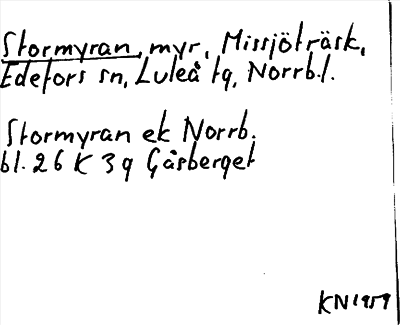 Stormyran, myr, Missjöträsk,
Edefors sn, Luleå tg, Norrb.l.
Stormyran ek Norrb.
bl. 26 K 3 g Gåsberget
KN 1959